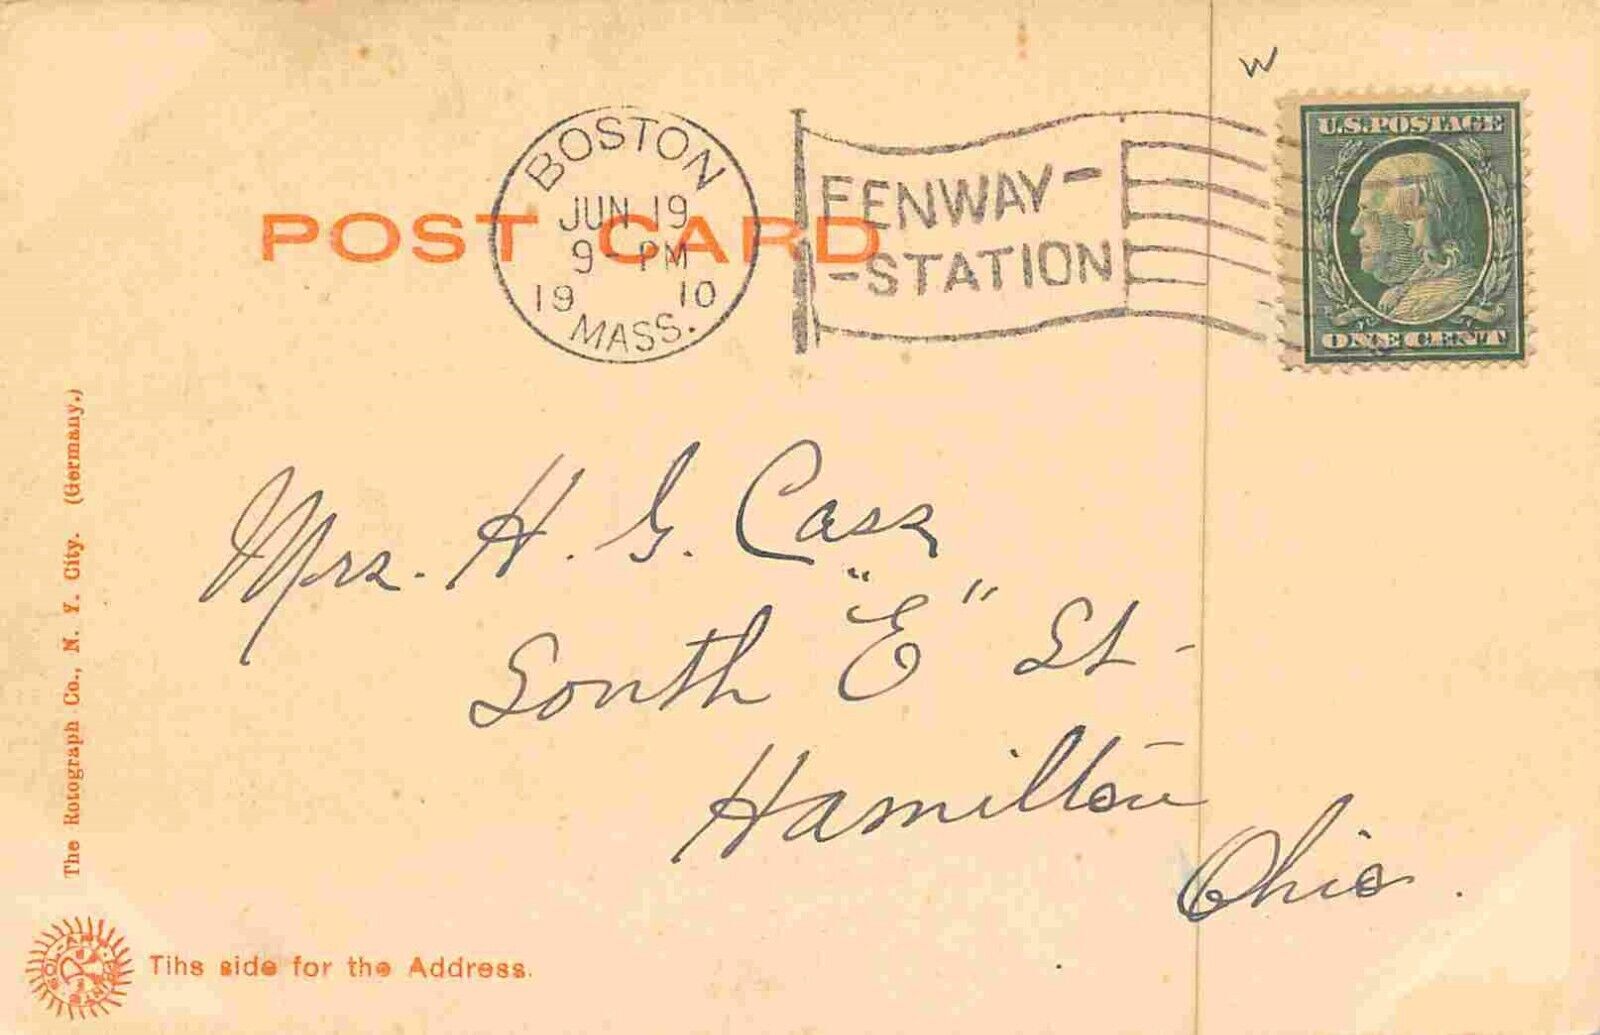 W
U.S. POSTAGE
ONE CENT
BOSTON
JUN 19
9 - PM
19 10
MASS.
FENWAY-
-STATION
POST CARD
Mrs. H. G. Cass
South "E" St-
Hamilton
Ohio.
The Rotograph Co., N. Y. City. (Germany.)
SOL-ART PRINTS
Tihs side for the Address.